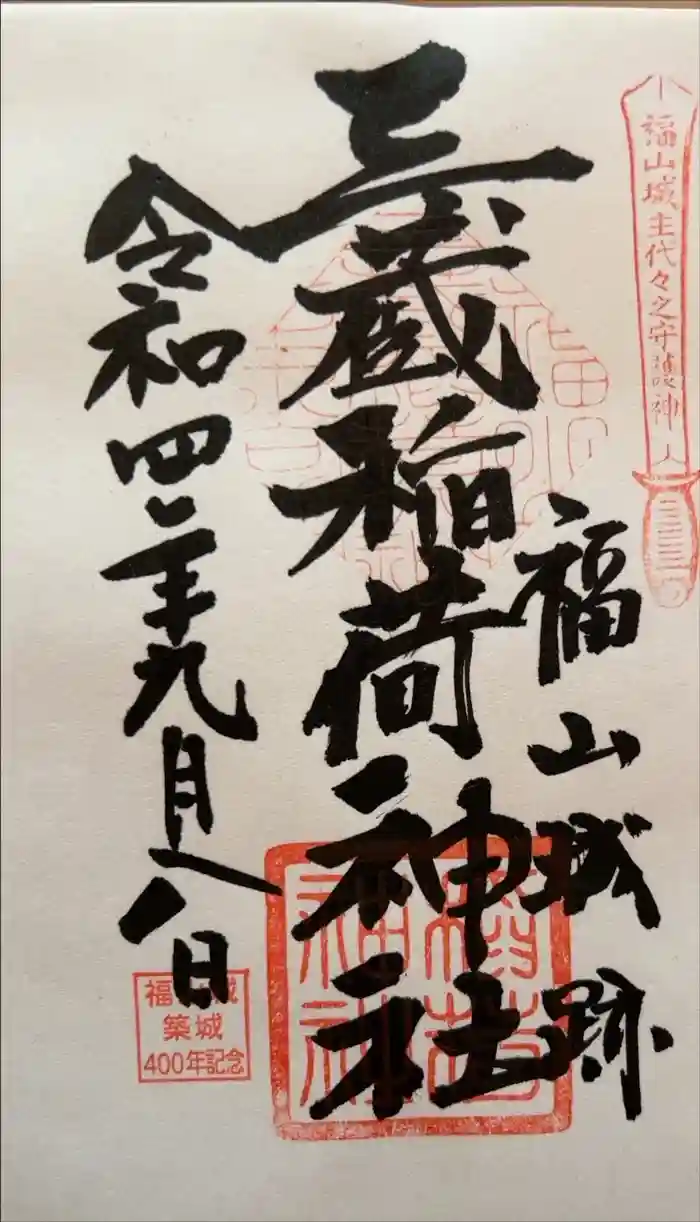 福山城主代々之守護神
福山城跡
三蔵稲荷神社
稲荷
神社
令和四年九月八日
福山城
築城
400年記念